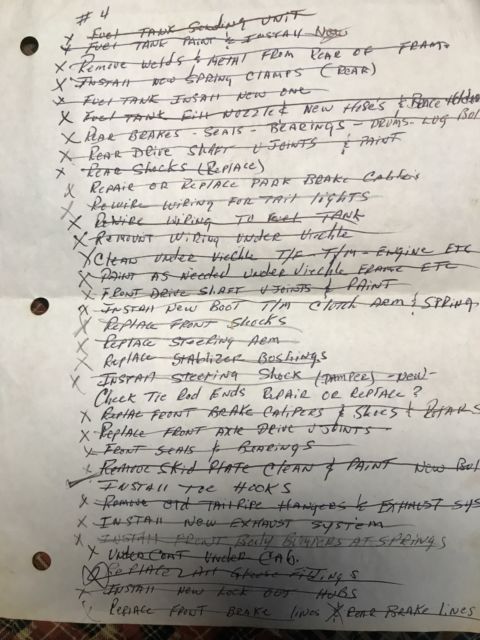 # 4
X Fuel Tank Sending Unit
X Fuel Tank Paint & Install New
X Remove Welds & Metal From Rear of Frame
X Install New Spring Clamps (Rear)
X Fuel Tank Insall New one
X Fuel Tank Fill Nozzle & New Hoses &
X Rear Brakes - Seals - Bearings - Drums - Lug Bol
X Rear Drive Shaft U Joints & Paint
X Rear Shocks (Replace)
X Repair or Replace Park Brake Cables
X Rewire Wiring For Tail Lights
X Rewire Wiring To Fuel Tank
X Remount Wiring Under Viechle
X Clean Under Viechle T/F - T/M - Engine Etc
X Paint As Needed Under Viechle Frame Etc
X Front Drive Shaft U Joints & Paint
X Install New Boot T/M Clutch Arm & Spring
X Replace Front Shocks
X Replace Steering Arm
X Replace Stablizer Boshings
X Install Steering Shock (Damper) - New -
Check Tie Rod Ends Repair or Replace ?
X Replae Front Brake Calipers & Shoes & Rotars
X Replace Front Axle Drive U Joints
X Front Seals & Bearings
X Remove Skid Plate Clean & Paint New Bol
✓ Install Toe Hooks
X Remove Old Tailpipe Hangers & Exhaust Sys
X Install New Exhaust System
X Install Front Body Bumpers At Springs
X Undercoat Under Cab.
Replace All Grease Fittings
X Install New Lock Out Hubs
Replace Front Brake Lines X Rear Brake Lines